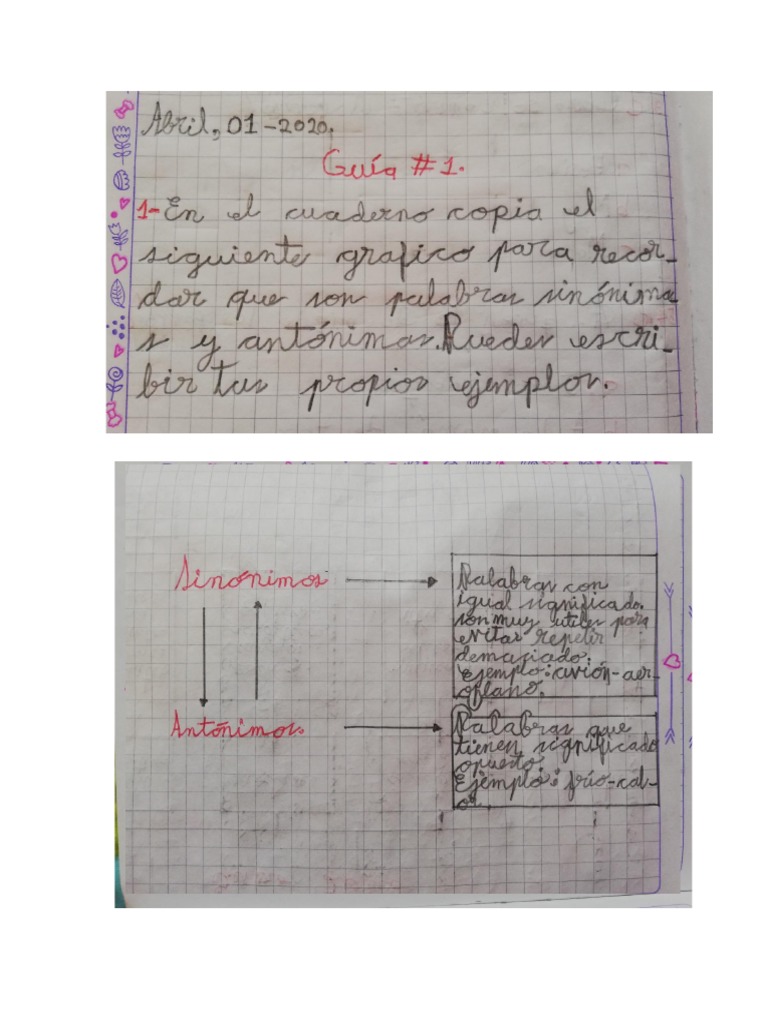 Abril, 01-2020.
Guía #1.
1-En el cuaderno copia el
siguiente grafico para recor-
dar que son palabras sinónima
s y antónimas. Puedes escri-
bir tus propios ejemplos.
Sinónimos
Palabras con
igual significado.
son muy utiles para
evitar repetir
demaciado.
ejemplo: avión-aer-
oplano.
Antónimos.
Palabras que
tienen significado
opuesto.
Ejemplo: frío-cal-
or.